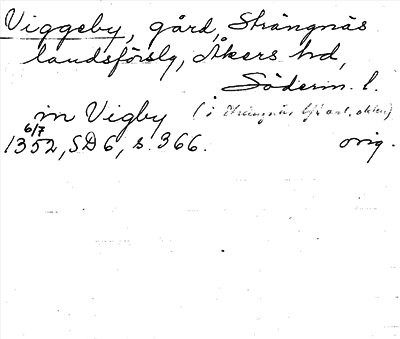 Viggeby, gård, Strängnäs
landsförslg, Åkers hd,
Söderm. l.
in Vigby (i Strängnäs
6/7
1352, SD 6, s. 366. orig.